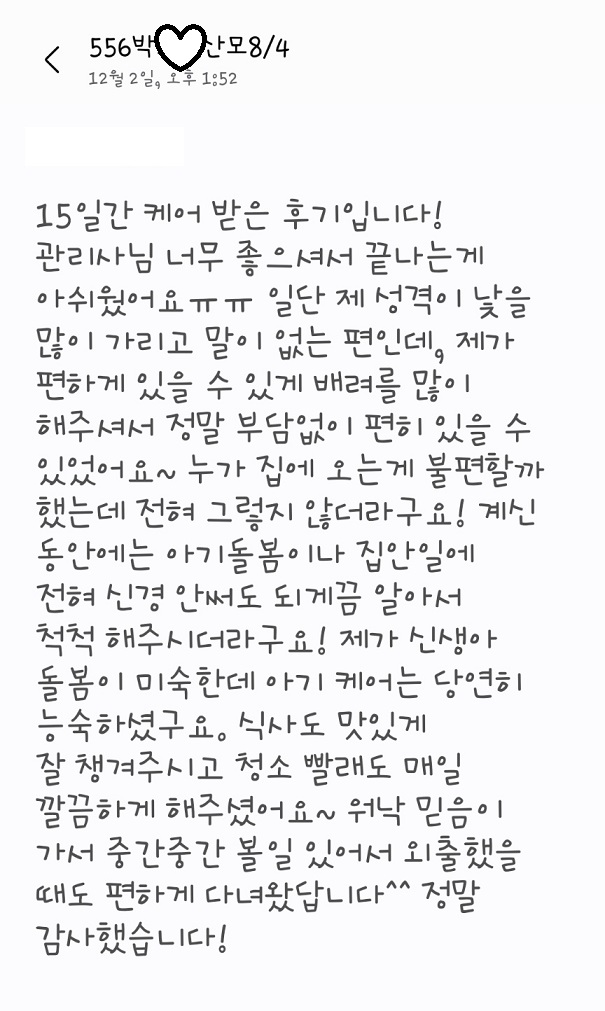 556박 산모8/4
12월 2일, 오후 1:52
15일간 케어 받은 후기입니다!
관리사님 너무 좋으셔서 끝나는게
아쉬웠어요ㅠㅠ 일단 제 성격이 낯을
많이 가리고 말이 없는 편인데, 제가
편하게 있을 수 있게 배려를 많이
해주셔서 정말 부담없이 편히 있을 수
있었어요~ 누가 집에 오는게 불편할까
했는데 전혀 그렇지 않더라구요! 계신
동안에는 아기돌봄이나 집안일에
전혀 신경 안써도 되게끔 알아서
척척 해주시더라구요! 제가 신생아
돌봄이 미숙한데 아기 케어는 당연히
능숙하셨구요. 식사도 맛있게
잘 챙겨주시고 청소 빨래도 매일
깔끔하게 해주셨어요~ 워낙 믿음이
가서 중간중간 볼일 있어서 외출했을
때도 편하게 다녀왔답니다^^ 정말
감사했습니다!